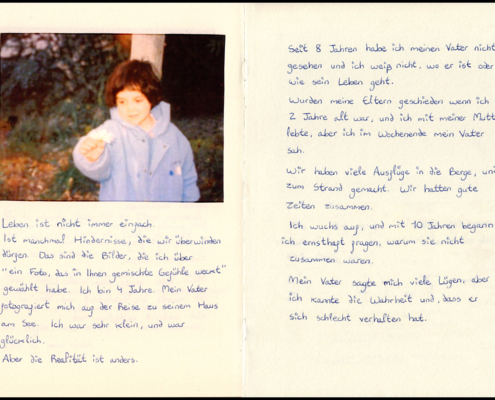 Leben ist nicht immer einfach.
Ist manchmal Hindernisse, die wir überwinden
dürgen. Das sind die Bilder, die ich über
"ein Foto, das in Ihnen gemischte Gefühle weckt"
gewählt habe. Ich bin 4 Jahre. Mein Vater
fotografiert mich auf der Reise zu seinem Haus
am See. Ich war sehr klein, und war
glücklich.
Aber die Realität ist anders.
Seit 8 Jahren habe ich meinen Vater nicht
gesehen und ich weiß nicht, wo er ist oder
wie sein Leben geht.
Wurden meine Eltern geschieden wenn ich
2 Jahre alt war, und ich mit meiner Mutt
lebte, aber ich im Wochenende mein Vater
sah.
Wir haben viele Ausflüge in die Berge, und
zum Strand gemacht. Wir hatten gute
Zeiten zusammen.
Ich wuchs auf, und mit 10 Jahren begann
ich ernsthaft fragen, warum sie nicht
zusammen waren.
Mein Vater sagte mich viele Lügen, aber
ich kannte die Wahrheit und, dass er
sich schlecht verhalten hat.